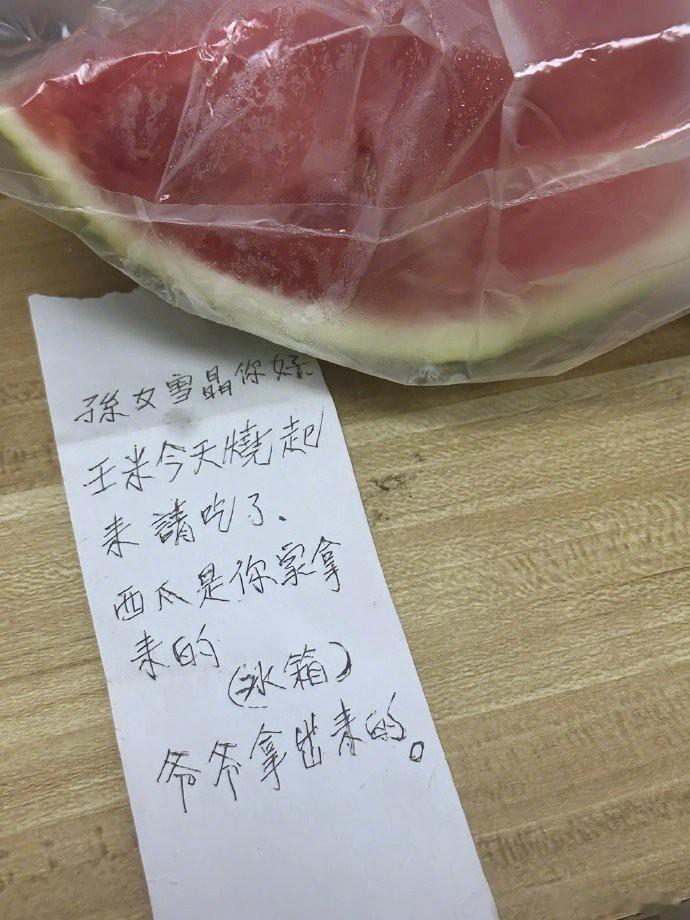 孫女雪晶你好
玉米今天燒起
来請吃了.
西瓜是你家拿
来的
(冰箱)
爷爷拿出来的。